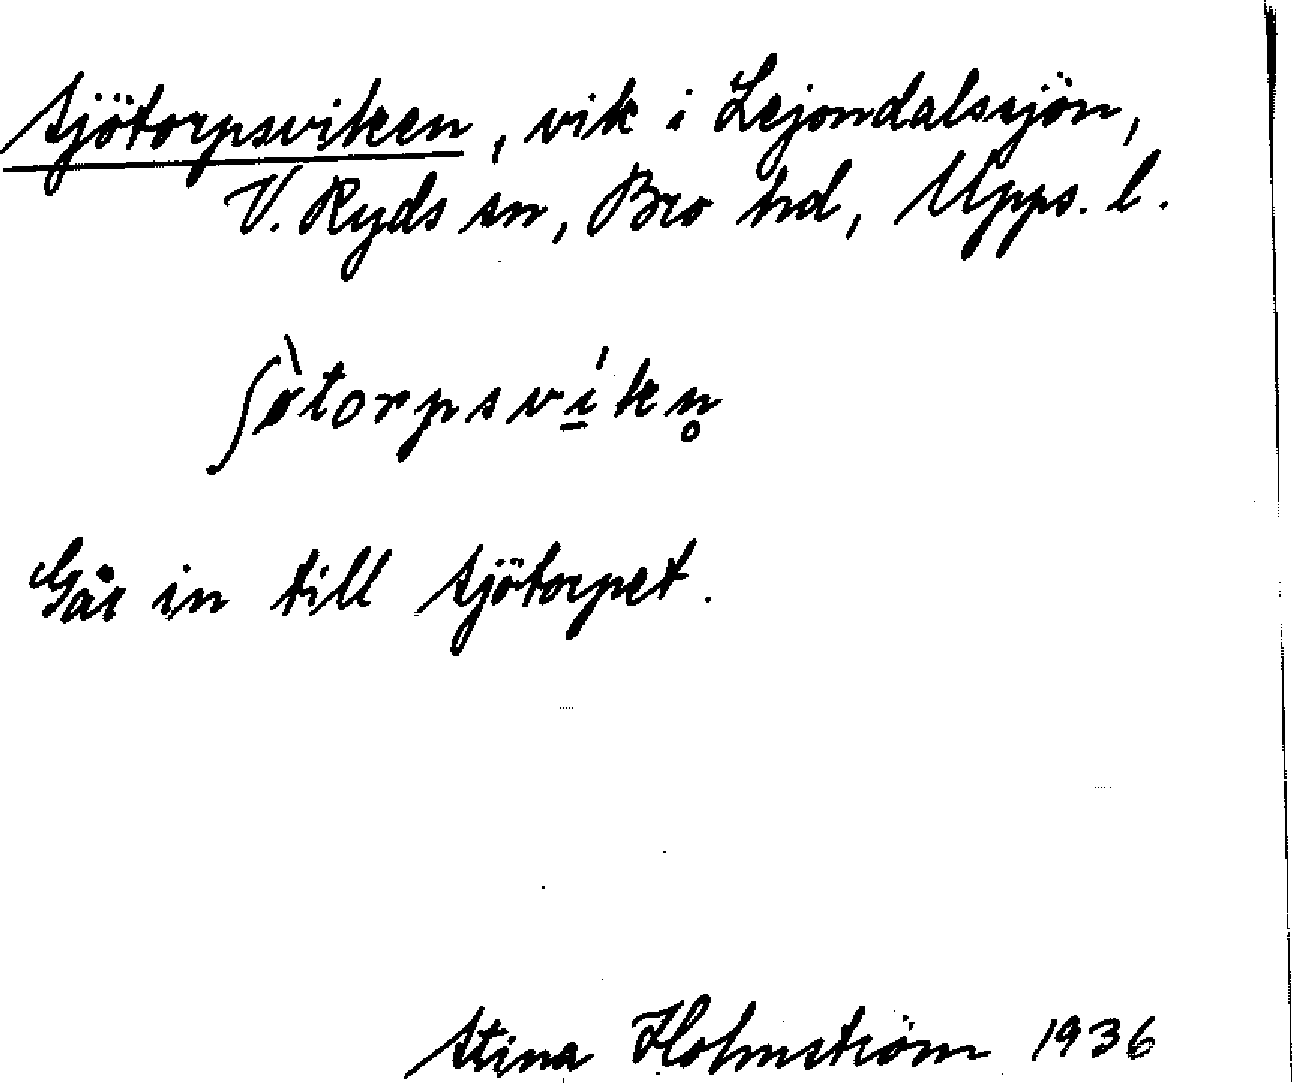 Sjötorpsviken, vik i Lejondalssjön,
V. Ryds sn, Bro hd, Upps. l.
ʃø̀torpsví̲kn̥
Går in till Sjötorpet.
Stina Holmström 1936